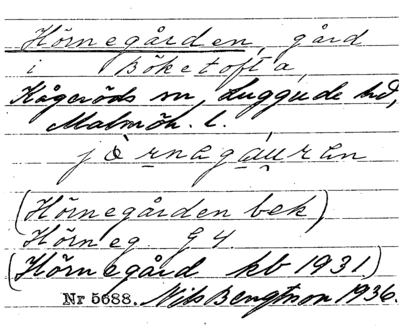 Hörnegården, gård
i Böketofta,
Kågeröds sn, Luggude hd,
Malmöh. l.
jö̀rnagáu̯ran
(Hörnegården bek)
Hörneg G4
(Hörnegård kb 1931)
Nr 5688. Nils Bengtsson 1936.